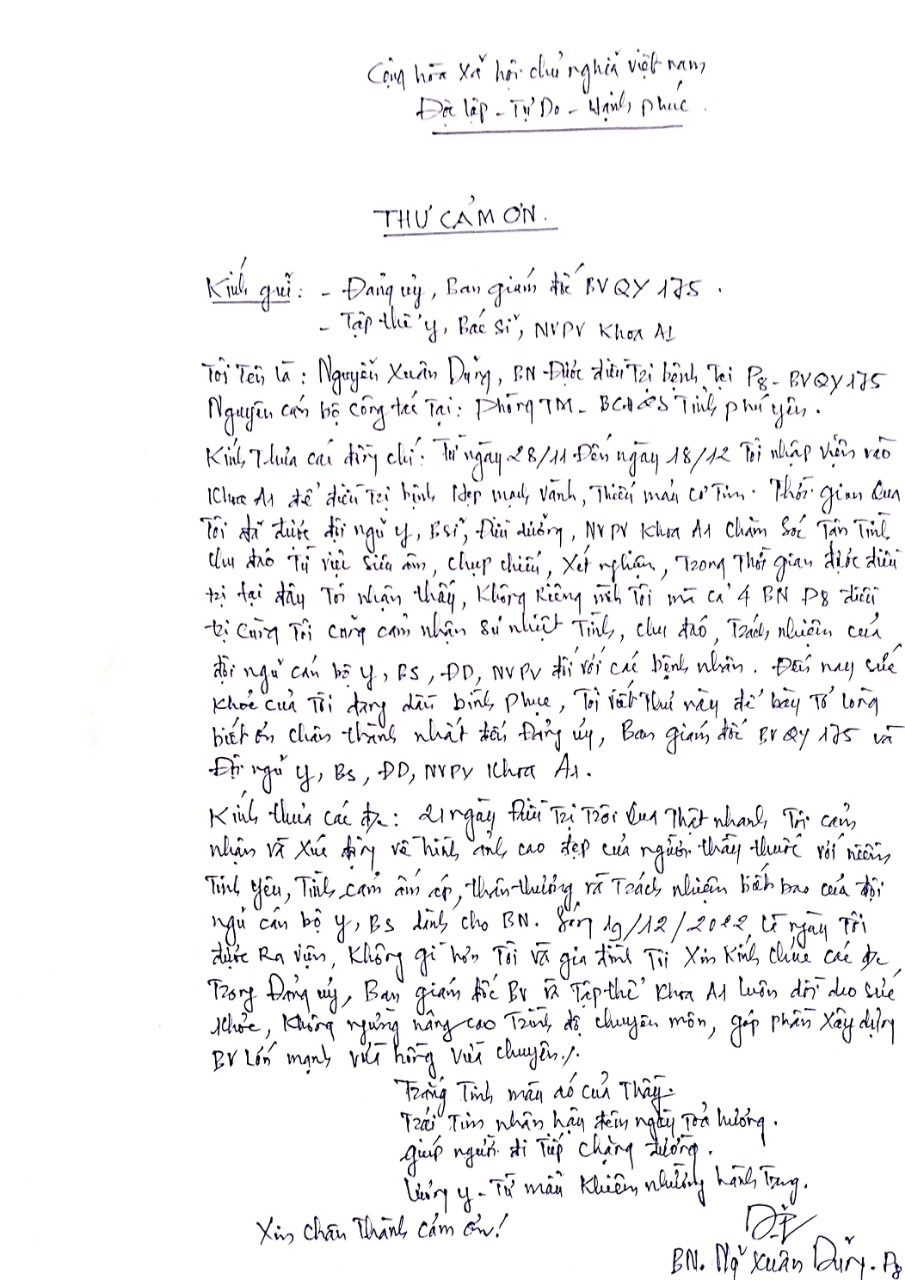 Cộng hòa Xã hội chủ nghĩa việt nam
Độc lập - Tự Do - Hạnh phúc.
THƯ CẢM ƠN.
Kính gửi: - Đảng ủy, Ban giám đốc BVQY 175.
- Tập thể y, Bác sĩ, NVPV Khoa A1
Tôi Tên là: Nguyễn Xuân Dũng, BN Được điều Trị bệnh Tại P8 - BVQY 175
Nguyên cán bộ công tác Tại: phòng TM - BCHQS Tỉnh phú yên.
Kính Thưa các đồng chí: Từ ngày 28/11 Đến ngày 18/12 Tôi nhập viện vào
Khoa A1 để điều Trị bệnh Hẹp mạch vành, Thiếu máu cơ Tim. Thời gian Qua
Tôi đã được đội ngũ y, Bsĩ, Điều dưỡng, NVPV Khoa A1 chăm sóc Tận Tình
chu đáo Từ việc siêu âm, chụp chiếu, Xét nghiệm, Trong Thời gian được điều
trị tại đây Tôi nhận thấy, Không Riêng mình Tôi mà cả 4 BN P8 điều
trị cùng Tôi cũng cảm nhận sự nhiệt Tình, chu đáo, Trách nhiệm của
đội ngũ cán bộ y, BS, ĐD, NVPV đối với các bệnh nhân. Đến nay sức
khỏe của Tôi đang dần bình phục, Tôi viết thư này để bày Tỏ lòng
biết ơn chân thành nhất đến Đảng ủy, Ban giám đốc BVQY 175 và
Đội ngũ y, Bs, ĐD, NVPV Khoa A1.
Kính thưa các đ/c: 21 ngày Điều Trị Trôi Qua Thật nhanh, Tôi cảm
nhận và Xúc động về hình ảnh cao đẹp của người thầy thuốc với niềm
Tình yêu, Tình cảm ấm áp, thân thương và Trách nhiệm biết bao của đội
ngũ cán bộ y, BS dành cho BN. Sáng 19/12/2022, là ngày Tôi
được Ra viện, Không gì hơn Tôi và gia đình Tôi Xin Kính chúc các đ/c
Trong Đảng ủy, Ban giám đốc BV và Tập thể Khoa A1 luôn dồi dào sức
Khỏe, Không ngừng nâng cao Trình độ chuyên môn, góp phần Xây dựng
BV Lớn mạnh vừa hồng vừa chuyên./.
Trắng Tinh màu áo của Thầy.
Trái Tim nhân hậu đêm ngày Toả hương.
giúp người đi Tiếp chặng đường.
Lương y - Từ mẫu Khiêm nhường hành Trang.
Xin chân Thành cảm ơn!
BN. Ng Xuân Dũng. P8